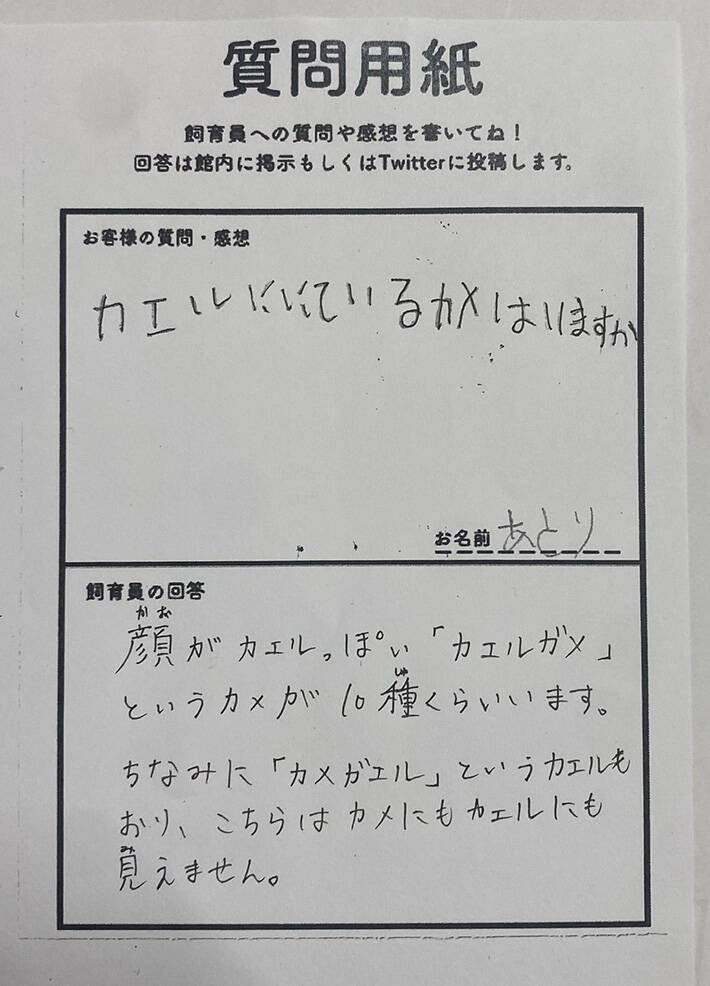 質問用紙
飼育員への質問や感想を書いてね！
回答は館内に掲示もしくはTwitterに投稿します。
お客様の質問・感想
カエルににているカメはいますか
お名前 あとり
飼育員の回答
かお
顔がカエルっぽい「カエルガメ」
しゅ
というカメが10種くらいいます。
ちなみに「カメガエル」というカエルも
おり、こちらはカメにもカエルにも
み
見えません。